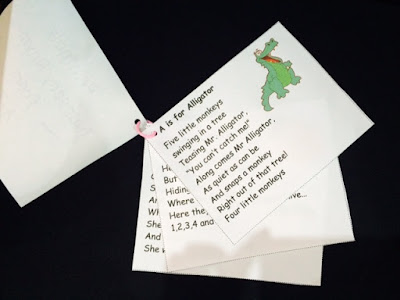 A is for Alligator
Five little monkeys
swinging in a tree
Teasing Mr. Alligator,
"You can't catch me!"
Along comes Mr Alligator,
As quiet as can be
And snaps a monkey
Right out of that tree!
Four little monkeys
He
But
Hiding
Where
Here the
1,2,3,4 and
Sh
And
She
So
And
She w